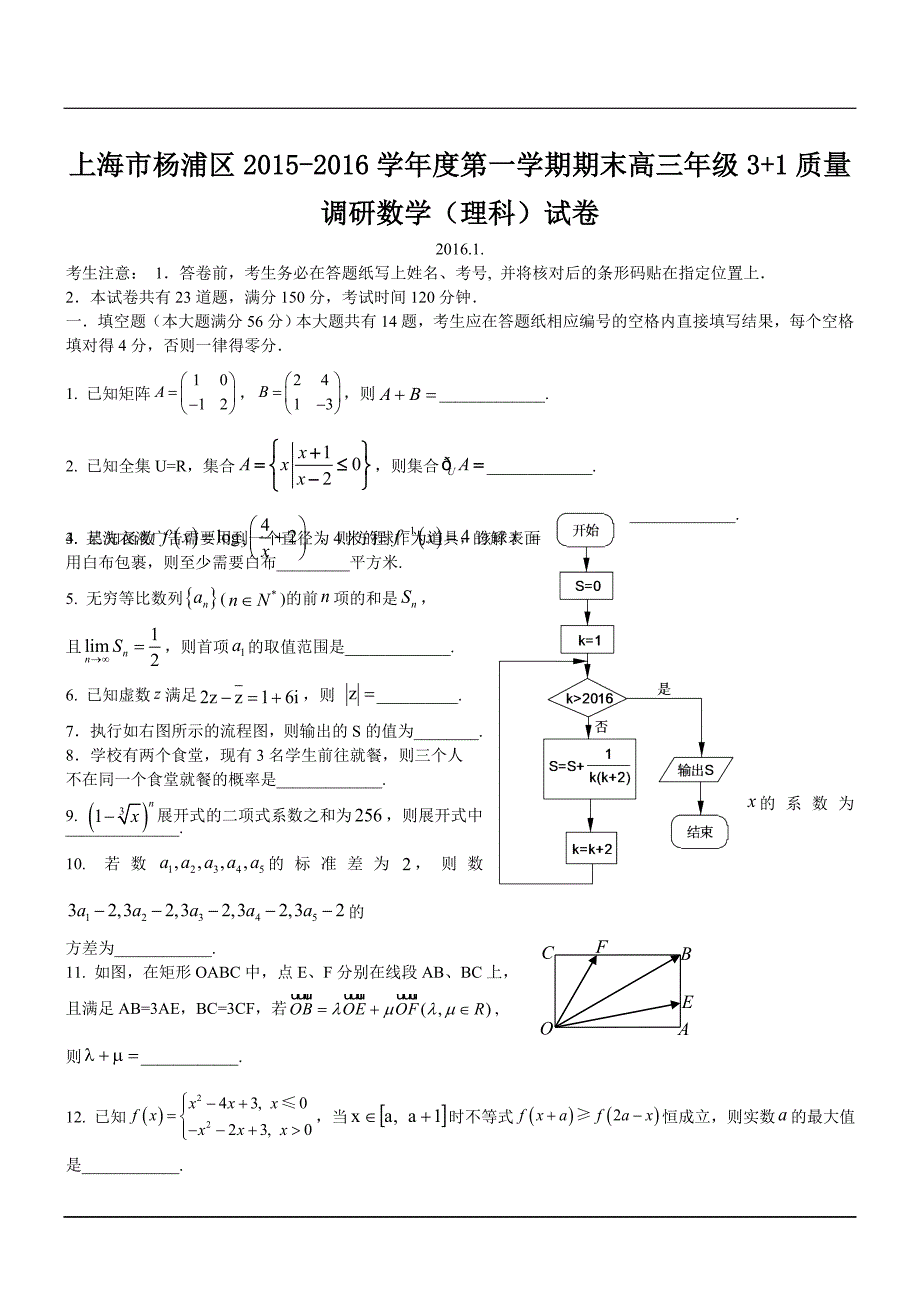 上海市杨浦区 2015-2016 学年度第一学期期末高三年级 3+1 质量
调研数学（理科）试卷
2016.1.
考生注意： 1．答卷前，考生务必在答题纸写上姓名、考号, 并将核对后的条形码贴在指定位置上．
2．本试卷共有 23 道题，满分 150 分，考试时间 120 分钟．
一．填空题（本大题满分 56 分）本大题共有 14 题，考生应在答题纸相应编号的空格内直接填写结果，每个空格
填对得 4 分，否则一律得零分．
1. 已知矩阵 A = (1 0; −1 2)， B = (2 4; 1 −3)，则 A + B = _____________.
2. 已知全集 U=R，集合 A = {x | (x+1)/(x−2) ≤ 0}，则集合 ð_U A = _____________.
_____________.
用白布包裹，则至少需要白布_________平方米.
5. 无穷等比数列 {a_n} (n ∈ N*)的前 n 项的和是 S_n，
且 lim_{n→∞} S_n = 1/2，则首项 a_1 的取值范围是_____________.
6. 已知虚数 z 满足 2z − z̅ = 1 + 6i，则 |z| = __________.
7．执行如右图所示的流程图，则输出的 S 的值为________.
8．学校有两个食堂，现有 3 名学生前往就餐，则三个人
不在同一个食堂就餐的概率是_____________.
9. (1 − ∛x)^n 展开式的二项式系数之和为 256，则展开式中 x 的系数为
______________.
10. 若数 a_1, a_2, a_3, a_4, a_5 的标准差为 2，则数
3a_1 − 2, 3a_2 − 2, 3a_3 − 2, 3a_4 − 2, 3a_5 − 2 的
方差为____________.
11. 如图，在矩形 OABC 中，点 E、F 分别在线段 AB、BC 上，
且满足 AB=3AE，BC=3CF，若 OB = λOE + μOF (λ, μ ∈ R)，
则 λ + μ = ____________.
12. 已知 f(x) = {x² − 4x + 3, x ≤ 0; −x² − 2x + 3, x > 0，当 x ∈ [a, a+1] 时不等式 f(x + a) ≥ f(2a − x) 恒成立，则实数 a 的最大值
是____________.
开始
S=0
k=1
k>2016
是
否
S=S+ 1/k(k+2)
输出S
k=k+2
结束
C
F
B
E
O
A